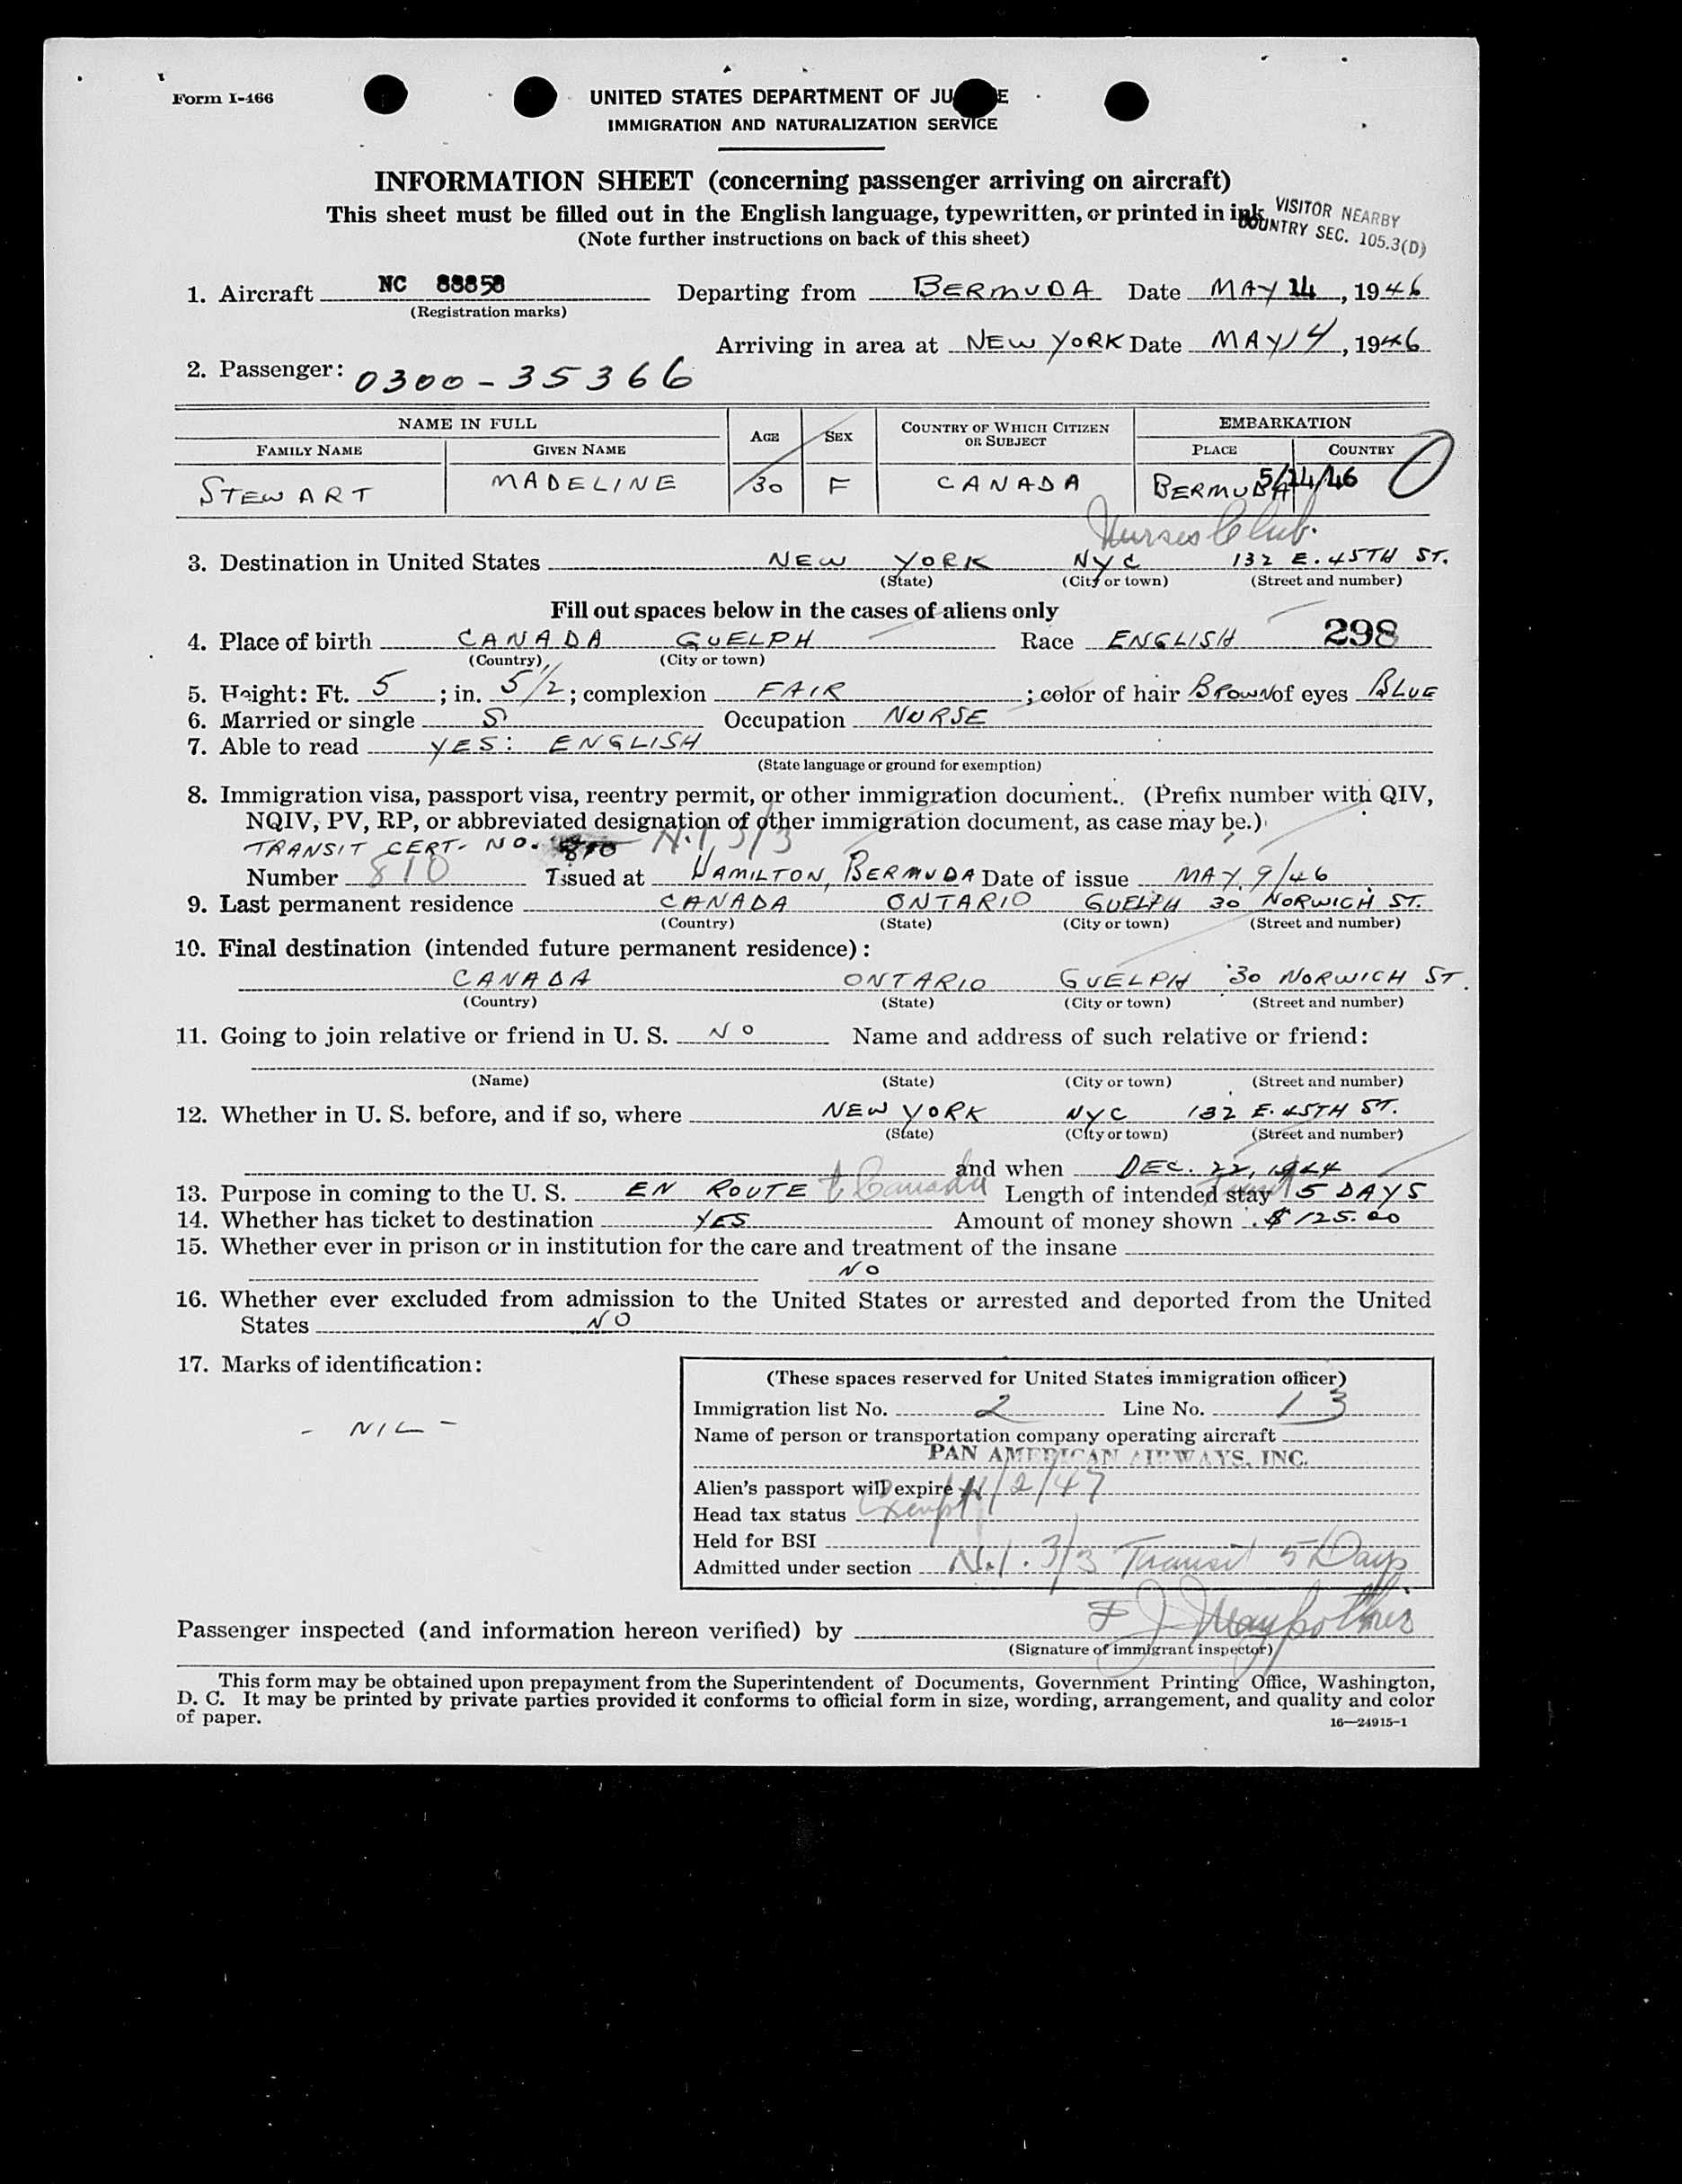 Form I-466
UNITED STATES DEPARTMENT OF JU E
IMMIGRATION AND NATURALIZATION SERVICE
INFORMATION SHEET (concerning passenger arriving on aircraft)
This sheet must be filled out in the English language, typewritten, or printed in ink
VISITOR NEARBY
COUNTRY SEC. 105.3(D)
(Note further instructions on back of this sheet)
1. Aircraft NC 88858 Departing from BERMUDA Date MAY 14, 1946
(Registration marks)
Arriving in area at NEW YORK Date MAY 14, 1946
2. Passenger: 0300-35366
NAME IN FULL AGE SEX COUNTRY OF WHICH CITIZEN OR SUBJECT EMBARKATION
FAMILY NAME GIVEN NAME PLACE COUNTRY
STEWART MADELINE 30 F CANADA BERMUDA 5/14/46 0
Nurses Club.
3. Destination in United States NEW YORK NYC 132 E. 45TH ST.
(State) (City or town) (Street and number)
Fill out spaces below in the cases of aliens only
4. Place of birth CANADA GUELPH Race ENGLISH 298
(Country) (City or town)
5. Height: Ft. 5; in. 5 1/2; complexion FAIR; color of hair BROWN of eyes BLUE
6. Married or single S Occupation NURSE
7. Able to read YES: ENGLISH
(State language or ground for exemption)
8. Immigration visa, passport visa, reentry permit, or other immigration document.. (Prefix number with QIV,
NQIV, PV, RP, or abbreviated designation of other immigration document, as case may be.)
TRANSIT CERT. NO. 810 N.I. 3/3
Number 810 Issued at HAMILTON, BERMUDA Date of issue MAY. 9/46
9. Last permanent residence CANADA ONTARIO GUELPH 30 NORWICH ST.
(Country) (State) (City or town) (Street and number)
10. Final destination (intended future permanent residence):
CANADA ONTARIO GUELPH 30 NORWICH ST.
(Country) (State) (City or town) (Street and number)
11. Going to join relative or friend in U. S. NO Name and address of such relative or friend:
(Name) (State) (City or town) (Street and number)
12. Whether in U. S. before, and if so, where NEW YORK NYC 132 E. 45TH ST.
(State) (City or town) (Street and number)
and when DEC. 22, 1944
13. Purpose in coming to the U. S. EN ROUTE to Canada Length of intended stay 5 DAYS
14. Whether has ticket to destination YES Amount of money shown $125.00
15. Whether ever in prison or in institution for the care and treatment of the insane
NO
16. Whether ever excluded from admission to the United States or arrested and deported from the United
States NO
17. Marks of identification:
- NIL -
(These spaces reserved for United States immigration officer)
Immigration list No. 2 Line No. 13
Name of person or transportation company operating aircraft
PAN AMERICAN AIRWAYS, INC.
Alien's passport will expire 11/2/47
Head tax status Exempt
Held for BSI
Admitted under section N.I. 3/3 Transit 5 Days
Passenger inspected (and information hereon verified) by
(Signature of immigrant inspector)
This form may be obtained upon prepayment from the Superintendent of Documents, Government Printing Office, Washington,
D. C. It may be printed by private parties provided it conforms to official form in size, wording, arrangement, and quality and color
of paper.
16—24915-1